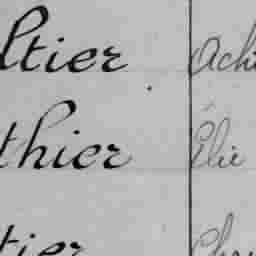 ltier Ach
thier Élie
tier Cha